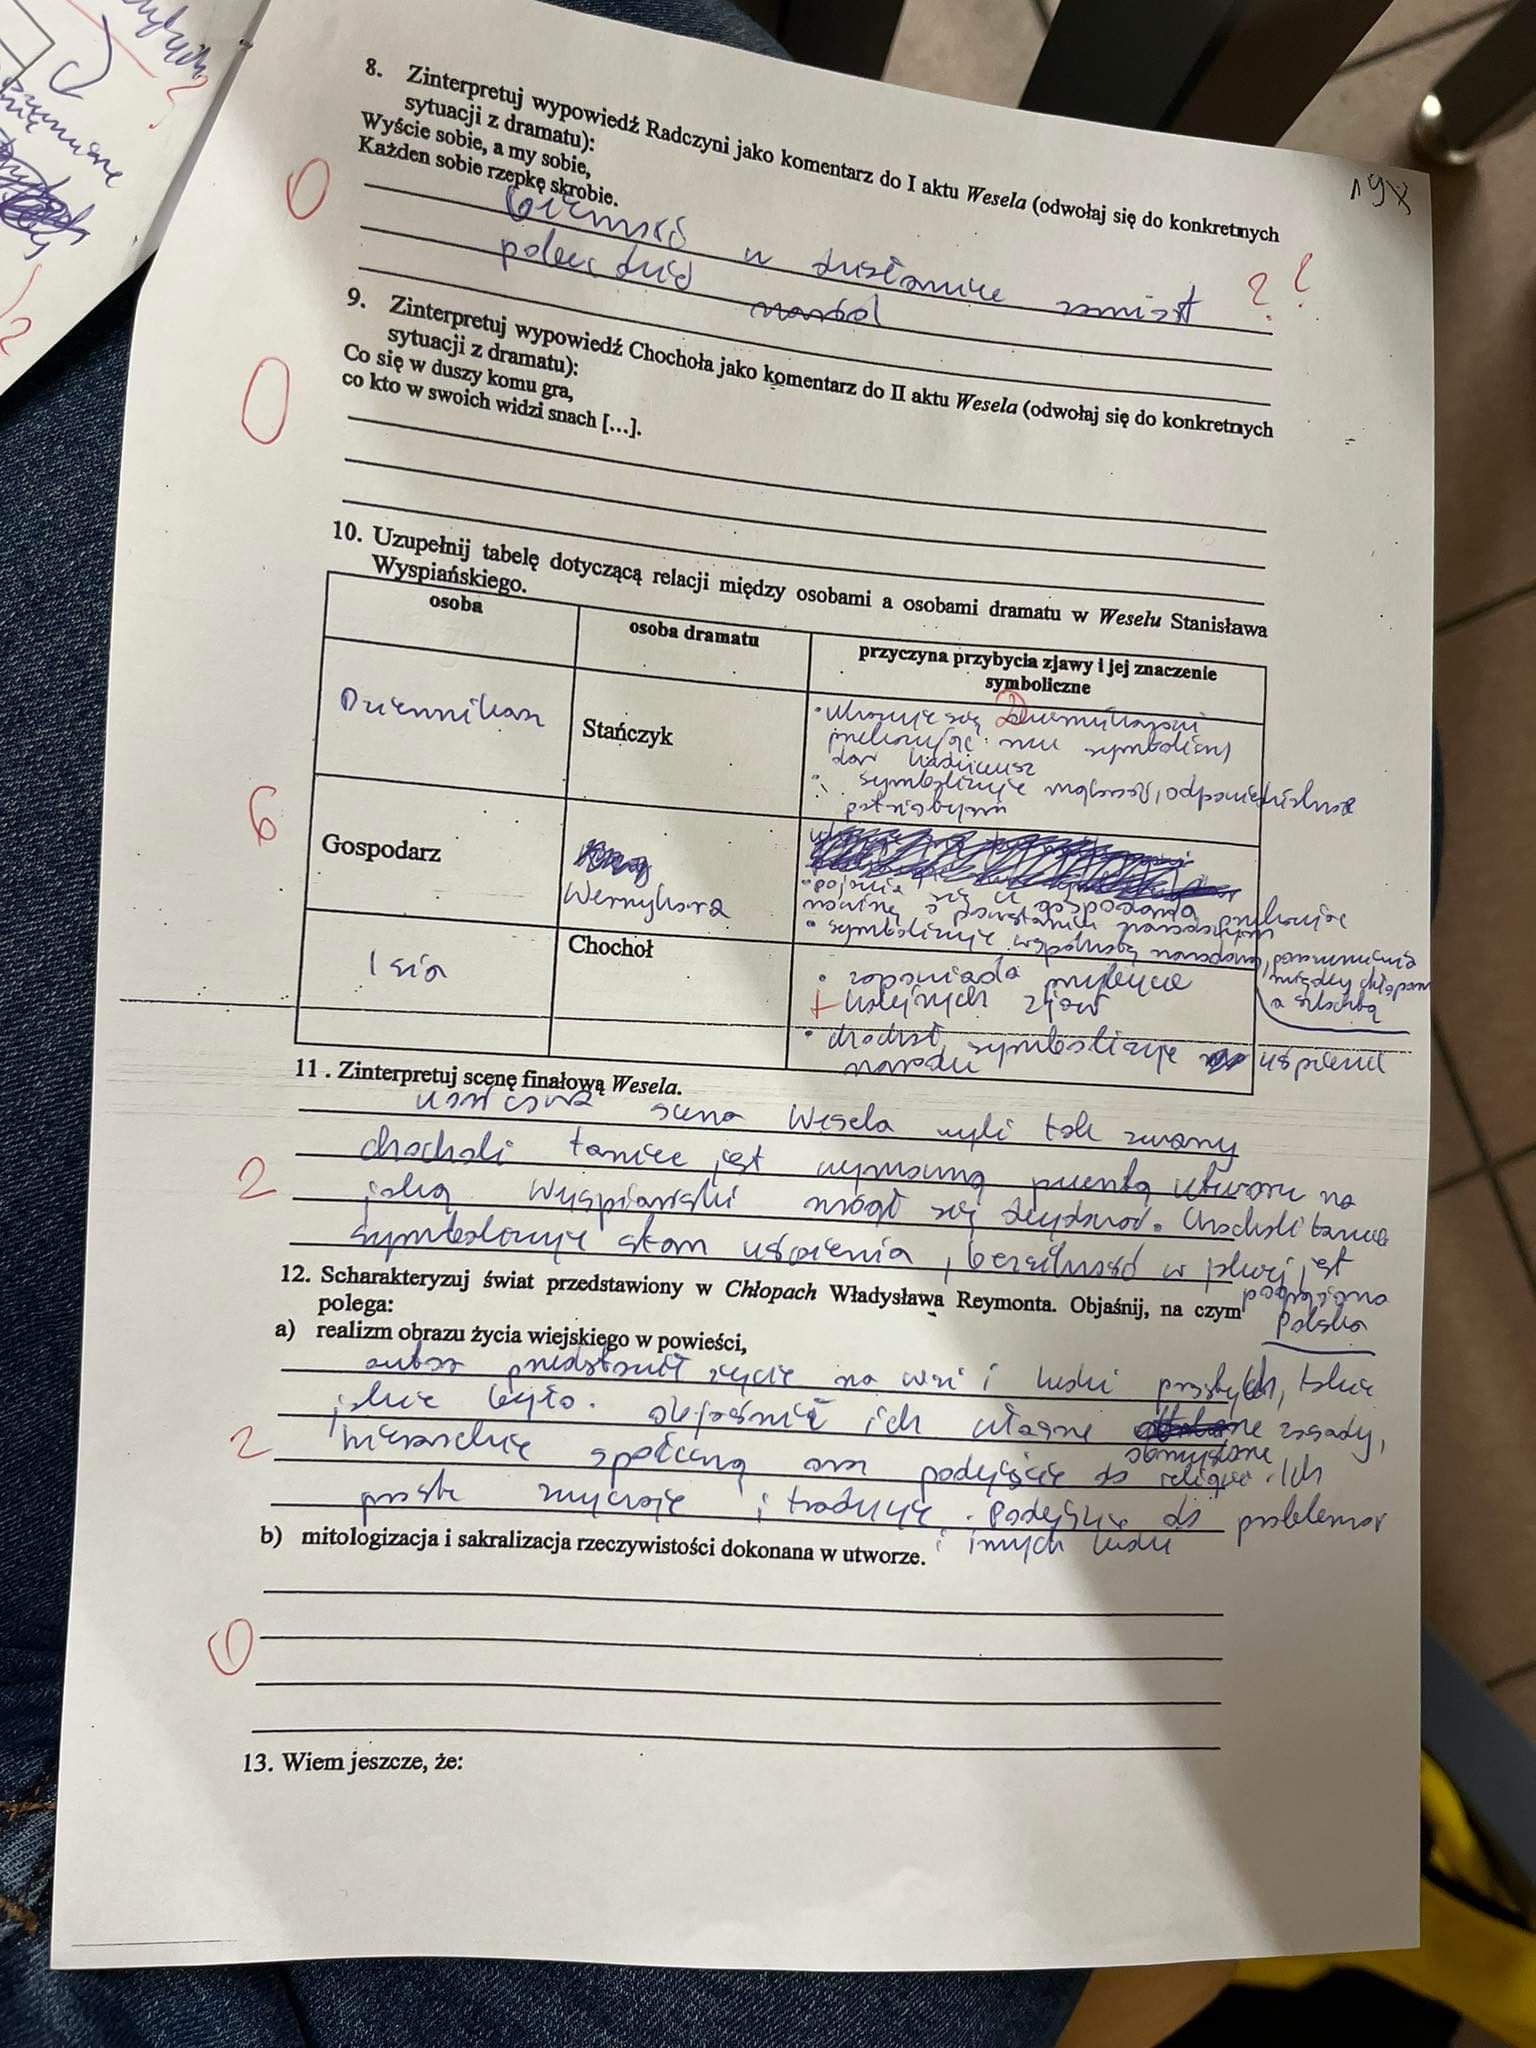 19X
8. Zinterpretuj wypowiedź Radczyni jako komentarz do I aktu Wesela (odwołaj się do konkretnych
sytuacji z dramatu):
Wyście sobie, a my sobie,
Każden sobie rzepkę skrobie.
0
bierność w działaniu zamiast ? !
9. Zinterpretuj wypowiedź Chochoła jako komentarz do II aktu Wesela (odwołaj się do konkretnych
sytuacji z dramatu):
Co się w duszy komu gra,
co kto w swoich widzi snach [...].
0
10. Uzupełnij tabelę dotyczącą relacji między osobami a osobami dramatu w Weselu Stanisława
Wyspiańskiego.
osoba
osoba dramatu
przyczyna przybycia zjawy i jej znaczenie
symboliczne
Dziennikarz
Stańczyk
• Ukazuje się Dziennikarzowi
przekazując mu symboliczny
dar kaduceusz
• symbolizuje mądrość, odpowiedzialność
patriotyzm
6
Gospodarz
Wernyhora
• pojawia się u gospodarza przekazując
nowinę o powstaniu narodowym
• symbolizuje wspólnotę narodową, porozumienia
między chłopami
a szlachtą
Isia
Chochoł
• zapowiada przybycie
kolejnych zjaw
• chochoł symbolizuje uśpienie
narodu
11 . Zinterpretuj scenę finałową Wesela.
końcowa scena Wesela czyli tak zwany
chocholi taniec jest wymowną puentą utworu na
jaką Wyspiański mógł się zdecydować. Chocholi taniec
symbolizuje stan uśpienia, bezsilność w której jest
pogrążona
Polska
2
12. Scharakteryzuj świat przedstawiony w Chłopach Władysława Reymonta. Objaśnij, na czym
polega:
a) realizm obrazu życia wiejskiego w powieści,
autor przedstawił życie na wsi i ludzi prostych, takie
jakie było. objaśnia ich własne zasady,
obmyślone
hierarchię społeczną oraz podejście do religii. Ich
proste zwyczaje i tradycje. Podejście do problemów
i innych ludzi
2
b) mitologizacja i sakralizacja rzeczywistości dokonana w utworze.
0
13. Wiem jeszcze, że: